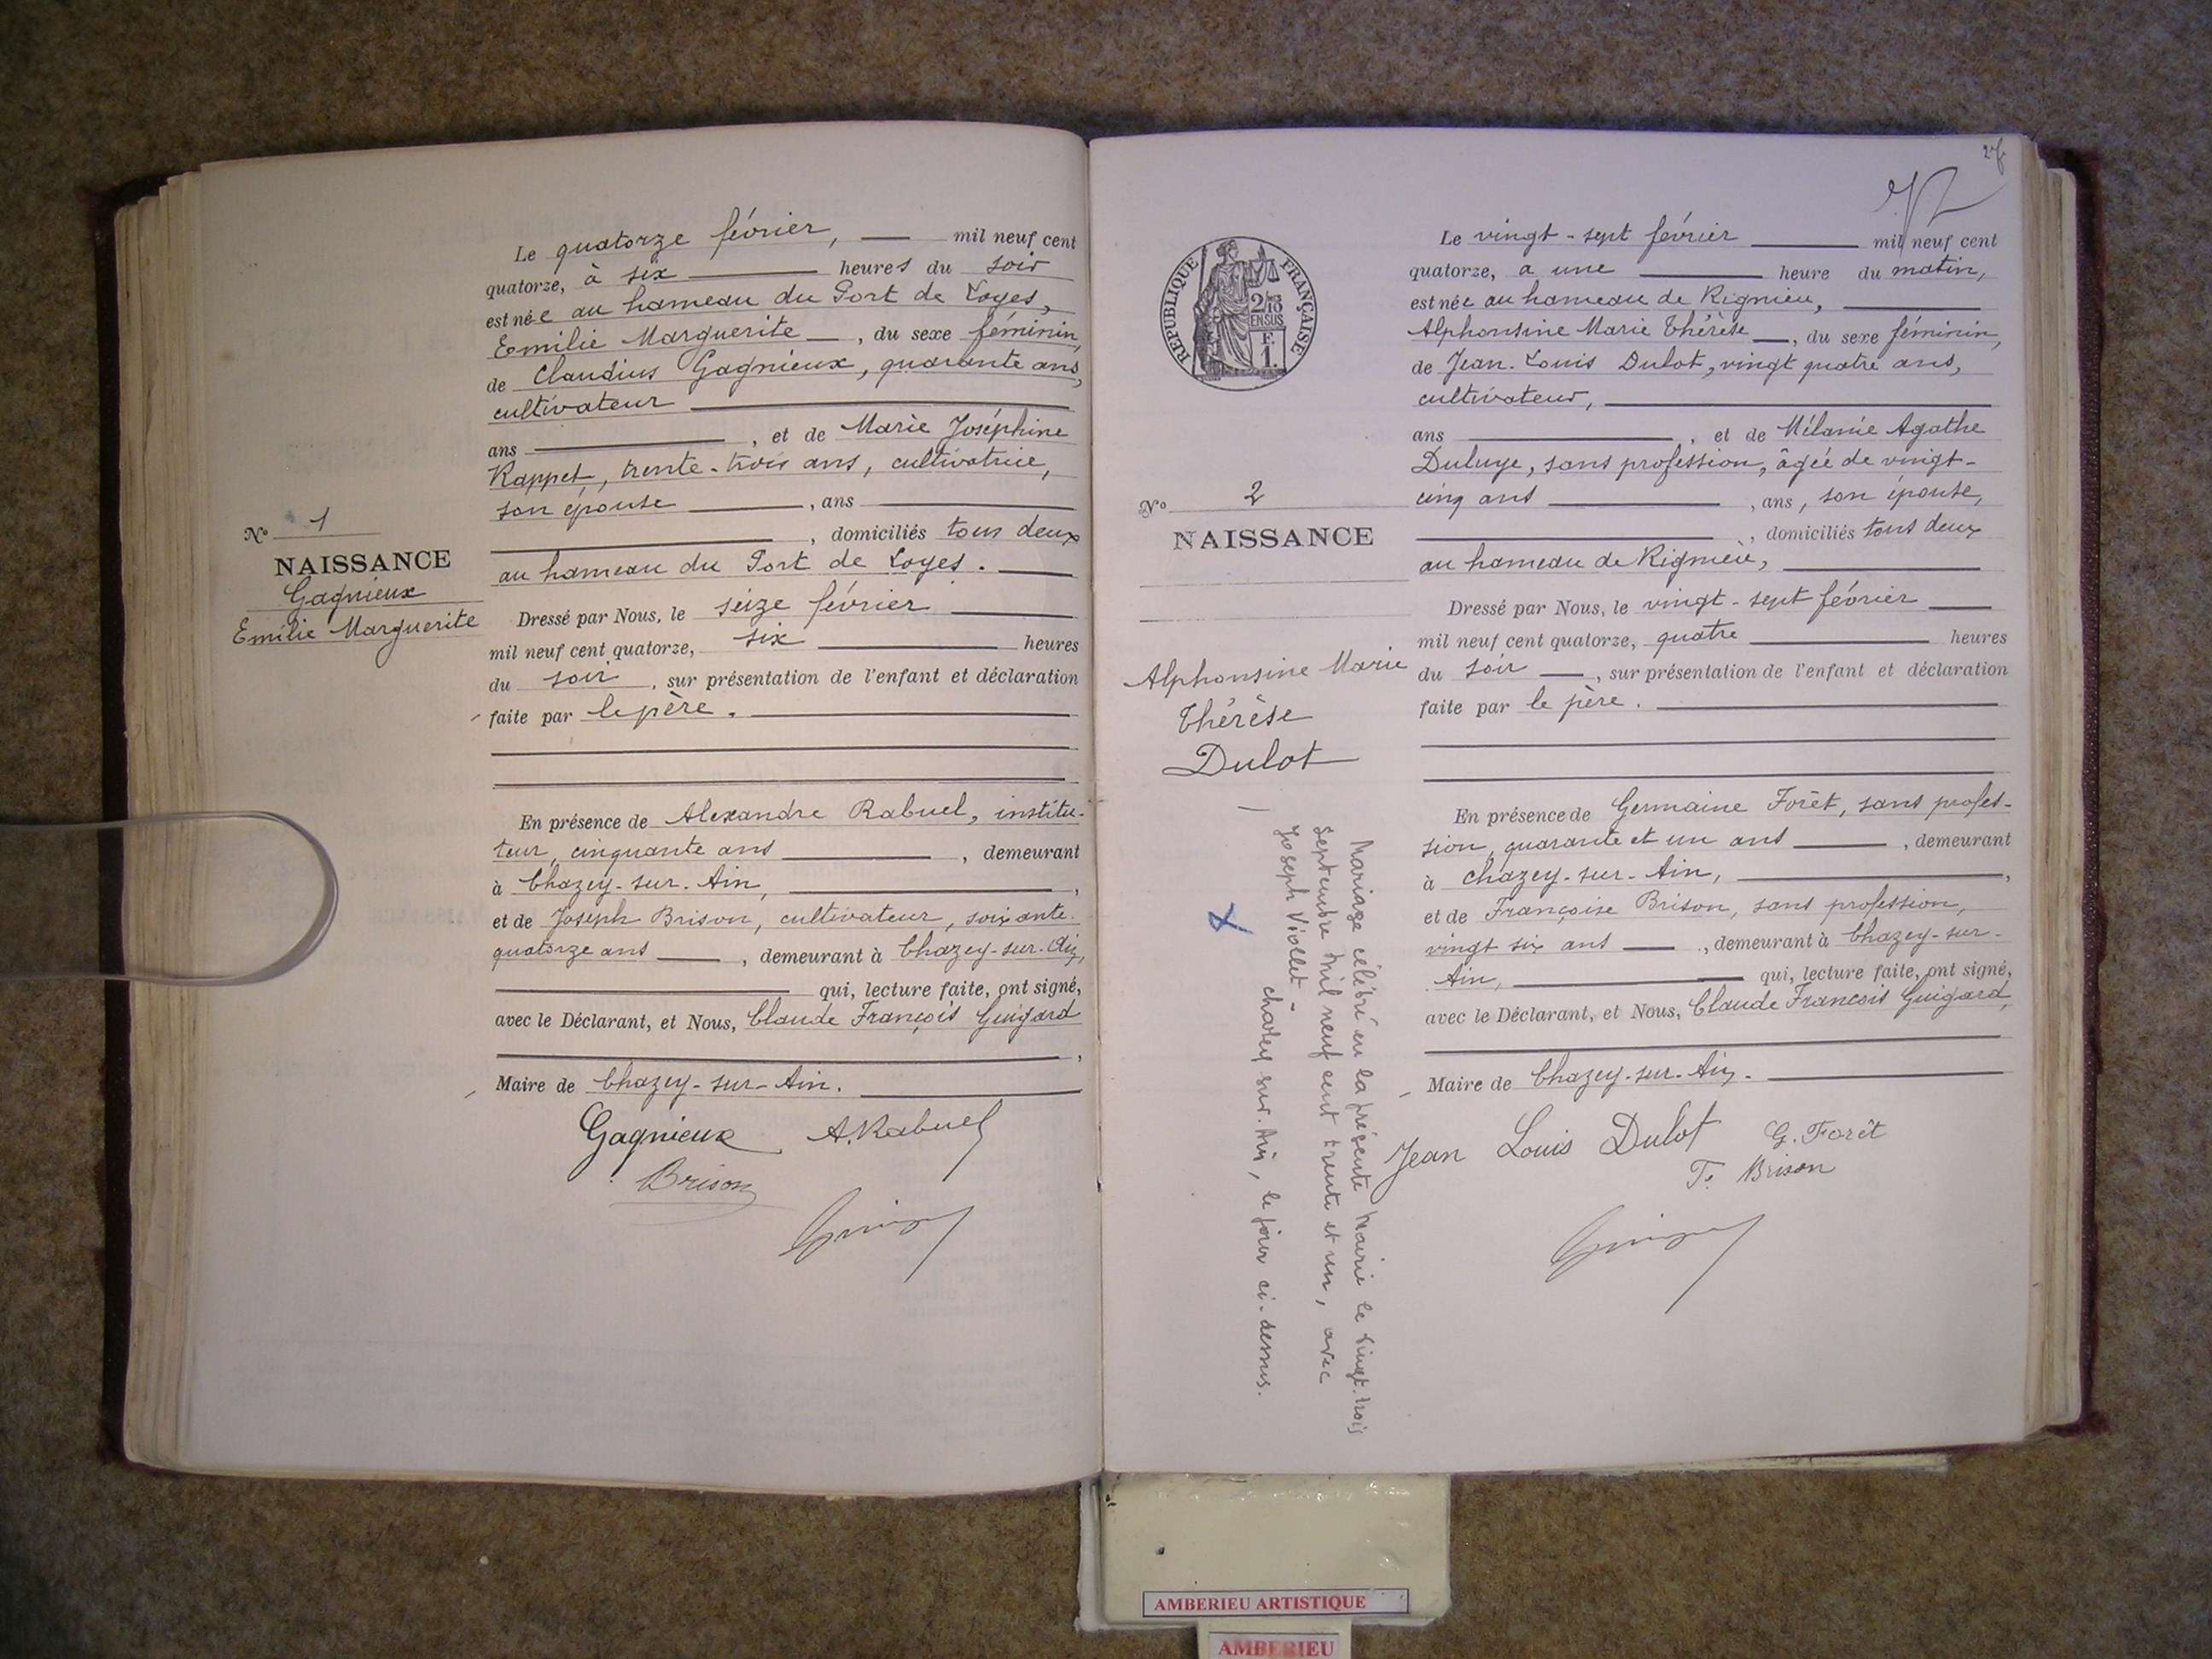 Le quatorze février, mil neuf cent
quatorze, à six heures du soir
est née au hameau du Port de Loyes,
Emilie Marguerite, du sexe féminin,
de Claudius Gagnieux, quarante ans,
cultivateur
ans, et de Marie Joséphine
Rappet, trente-trois ans, cultivatrice,
son épouse, ans
, domiciliés tous deux
au hameau du Port de Loyes.
Dressé par Nous, le seize février
mil neuf cent quatorze, six heures
du soir, sur présentation de l'enfant et déclaration
faite par le père.
En présence de Alexandre Rabuel, institu-
teur, cinquante ans, demeurant
à Chazey-sur-Ain,
et de Joseph Brison, cultivateur, soixante-
quatorze ans, demeurant à Chazey-sur-Ain,
qui, lecture faite, ont signé,
avec le Déclarant, et Nous, Claude François Guigard
,
Maire de Chazey-sur-Ain.
Gagnieux A. Rabuel
Brison
N° 1
NAISSANCE
Gagnieux
Emilie Marguerite
RÉPUBLIQUE FRANÇAISE
2/10
EN SUS
F.
1.
N° 2
NAISSANCE
Alphonsine Marie
Thérèse
Dulot
Mariage célébré en la présente mairie le vingt-trois
septembre mil neuf cent trente et un, avec
Joseph Violet -
chazey sur-Ain, le jour ci-dessus.
Le vingt-sept février mil neuf cent
quatorze, à une heure du matin,
est née au hameau de Rignieu,
Alphonsine Marie Thérèse, du sexe féminin,
de Jean-Louis Dulot, vingt quatre ans,
cultivateur,
ans, et de Mélanie Agathe
Duluye, sans profession, âgée de vingt-
cinq ans, ans, son épouse,
, domiciliés tous deux
au hameau de Rignieu,
Dressé par Nous, le vingt-sept février
mil neuf cent quatorze, quatre heures
du soir, sur présentation de l'enfant et déclaration
faite par le père.
En présence de Germaine Forêt, sans profes-
sion, quarante et un ans, demeurant
à Chazey-sur-Ain,
et de Françoise Brison, sans profession,
vingt six ans, demeurant à Chazey-sur-
Ain, qui, lecture faite, ont signé,
avec le Déclarant, et Nous, Claude François Guigard,
Maire de Chazey-sur-Ain.
Jean Louis Dulot G. Forêt
F. Brison
AMBERIEU ARTISTIQUE
AMBERIEU